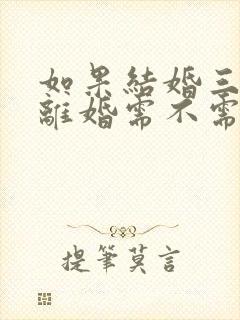 如果結婚三
離婚需不需
提筆莫言